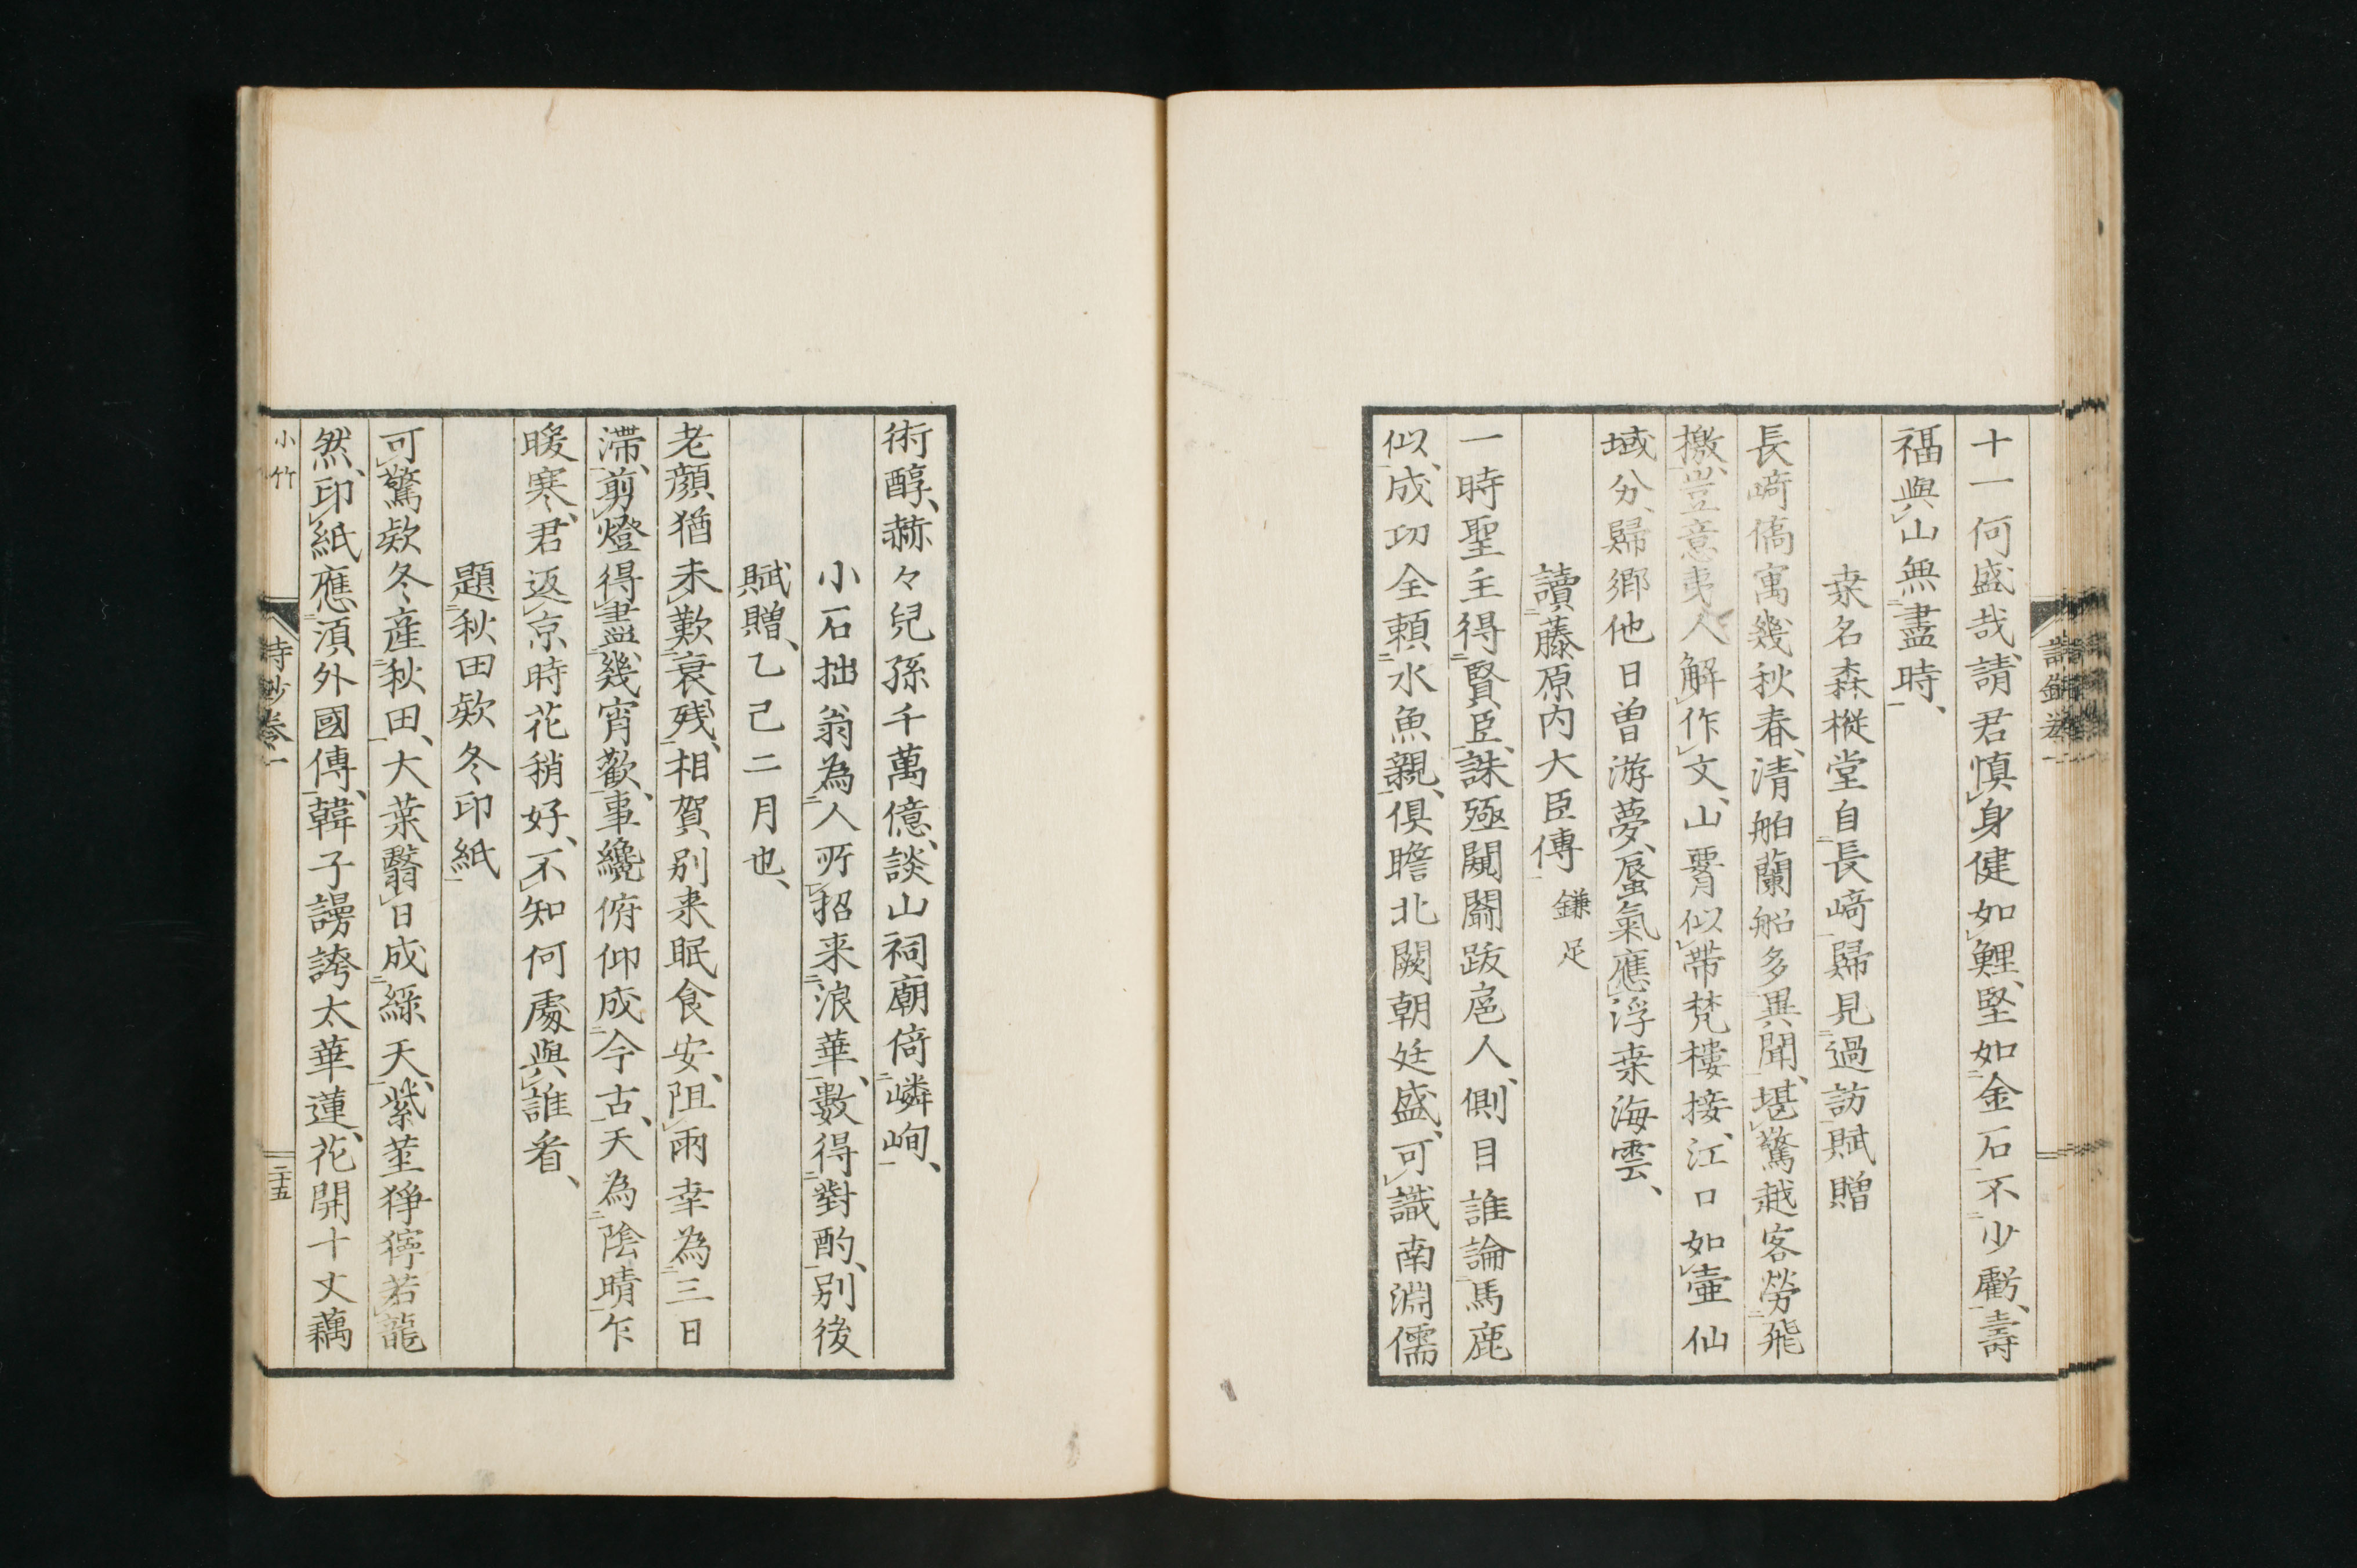 十一何盛哉、請君慎身健如鯉、堅如金石不少虧、壽
福與山無盡時、
桒名森樅堂自長﨑歸見過訪賦贈
長﨑僑寓幾秋春、清舶蘭船多異聞、堪驚越客勞飛
檄、豈意夷人解作文、山霄似帶梵樓接、江口如壷仙
域分、歸鄉他日曽游夢、蜃氣應浮桒海雲、
讀藤原内大臣傳 鎌足
一時聖主得賢臣、誅殛闚闘跋扈人、側目誰論馬鹿
似、成功全頼水魚親、俱瞻北闕朝廷盛、可識南淵儒
術醇、赫々兒孫千萬億、談山祠廟倚嶙峋、
小石拙翁為人所招来浪華、數得對酌、別後
賦贈、乙己二月也、
老顔猶未歎衰残、相賀別来眠食安、阻雨幸為三日
滯、剪燈得盡幾宵歡、事纔俯仰成今古、天為陰晴乍
暖寒、君返京時花稍好、不知何處與誰看、
題秋田欵冬印紙
可驚欵冬産秋田、大葉翳日成綠天、紫莖猙獰若龍
然、印紙應湏外國傳、韓子謾誇太華蓮、花開十丈藕
小竹
詩鈔卷一
二十五